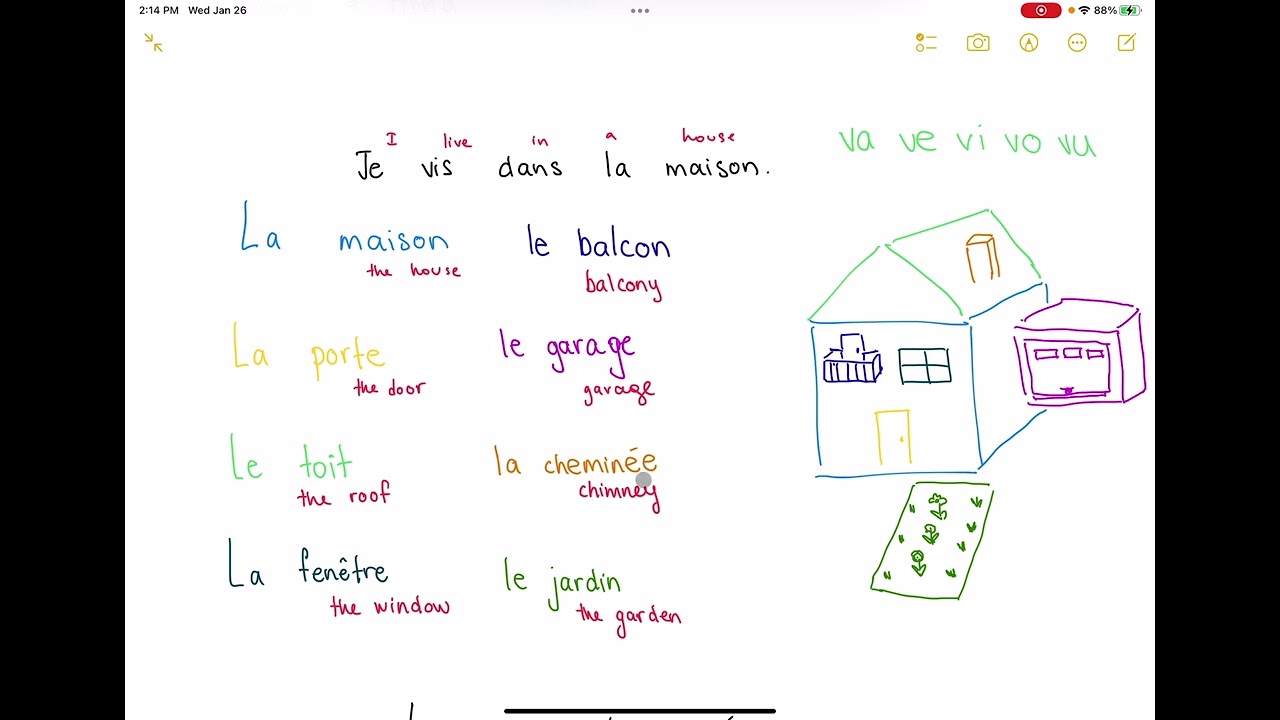 2:14 PM Wed Jan 26
88%
I live in a house
Je vis dans la maison.
va ve vi vo vu
La maison
the house
le balcon
balcony
La porte
the door
le garage
garage
Le toit
the roof
la cheminée
chimney
La fenêtre
the window
le jardin
the garden